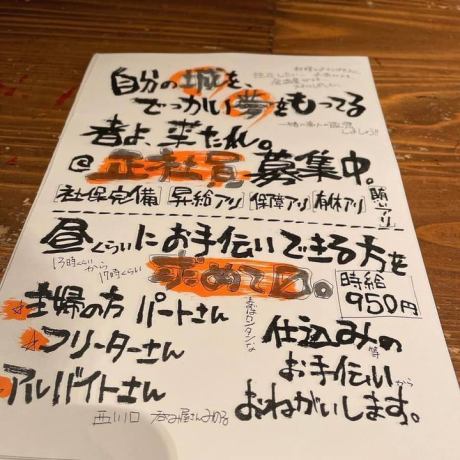 自分の城を、
でっかい夢をもってる
者よ、来たれ。
@正社員募集中。
[社保完備] [昇給アリ] [保障アリ] [有休アリ]
昼くらいにお手伝いできる方を
13時くらいから
17時くらい
求めて
時給
950円
主婦の方 パートさん
フリーターさん
アルバイトさん
仕込みの等
お手伝いから
おねがいします。
西川口